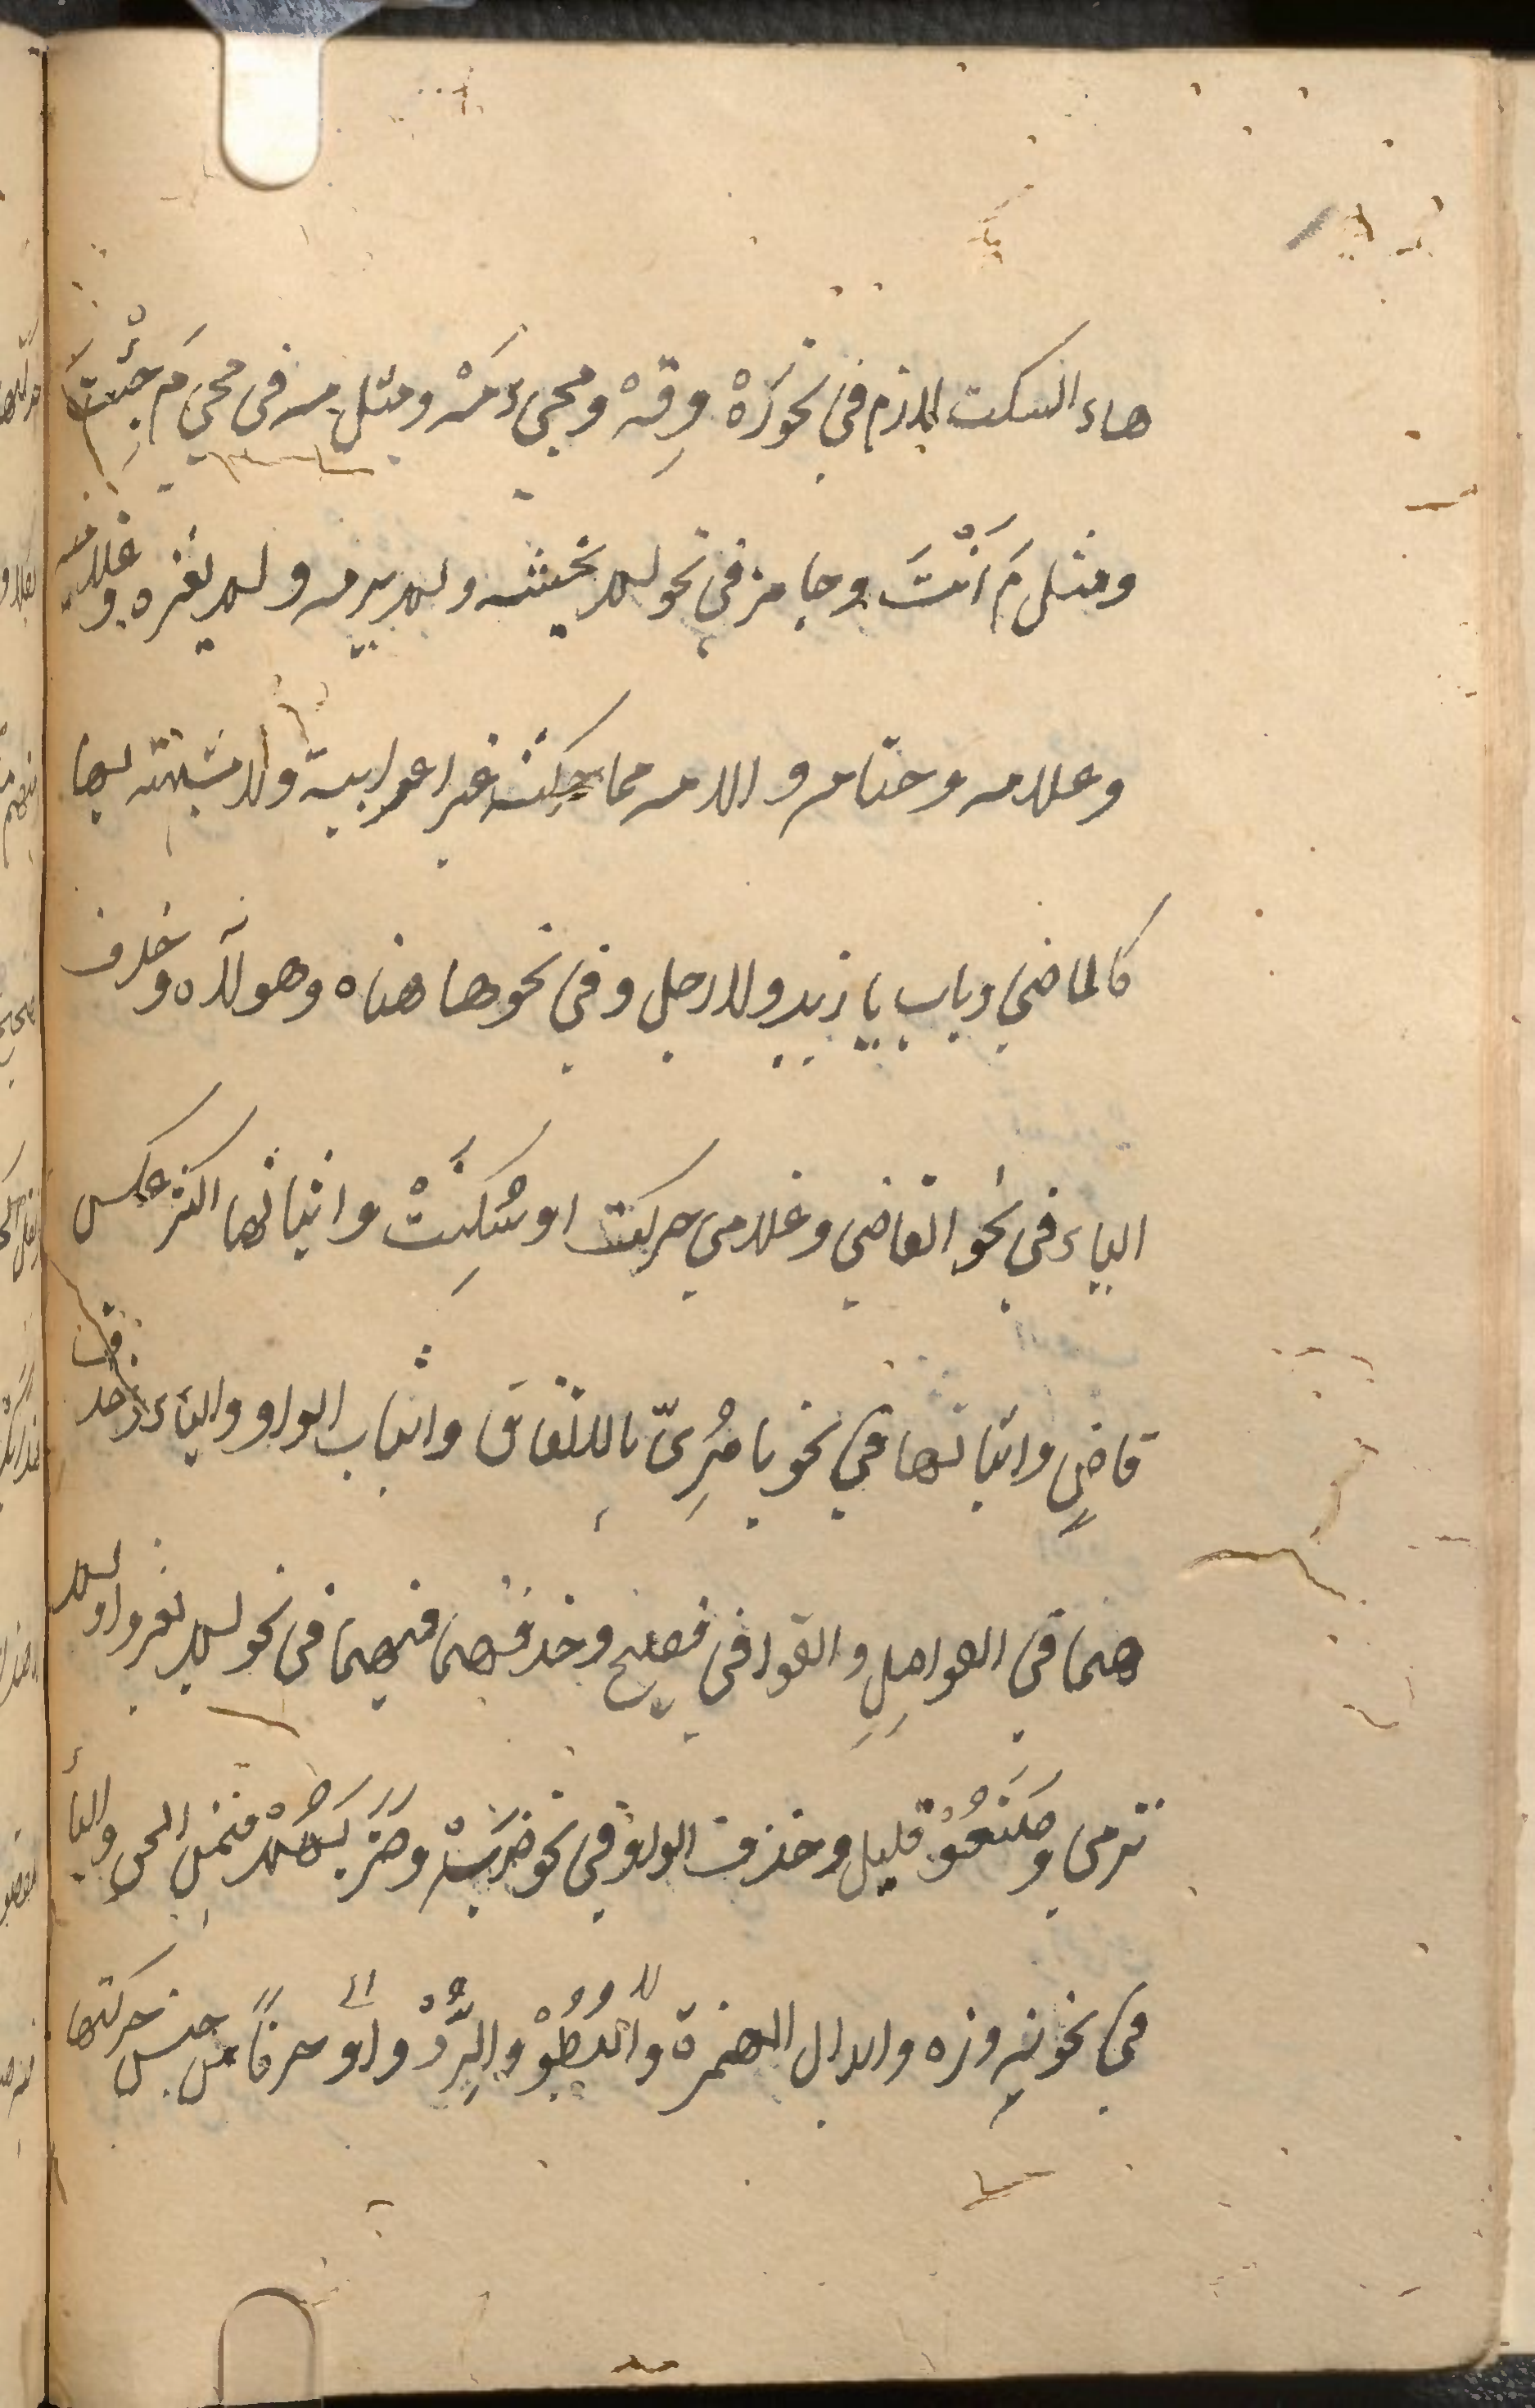 هاء السكت لازم في نحو رَهْ وقِهْ ومجيءَ مَهْ ومثل مه في مجيء مَ جِئْتَ
ومثل مَ أَنْتَ وجايز في نحو لم يخشه ولم يرمه ولم يغزه وغلاميه
وعلامه وحتامه والامه مما حركته غير اعرابيّة ولا مشبهته بها
كالماضي وباب يا زيد ولا رجل وفي نحو هاهناه وهؤلاه وحذف
الياء في نحو القاضي وغلامي حركت او سُكِّنَتْ واثباتها اكثر عكس
قاضٍ واثباتها في نحو يا مُرِي باللتفاق واثبات الواو والياء وحذف
هما في الفواصلِ والقوافي فصيح وحذفهما فيهما في نحو لم يغزوا ولم
ترمي وصَنَعُوْ قليل وحذف الواو في نحو ضربَهْ وضَرَبَهُمْ فيمن الحق والياء
في نحو تِه وذه وابدال الهمزة حرفًا من جنس حركتها